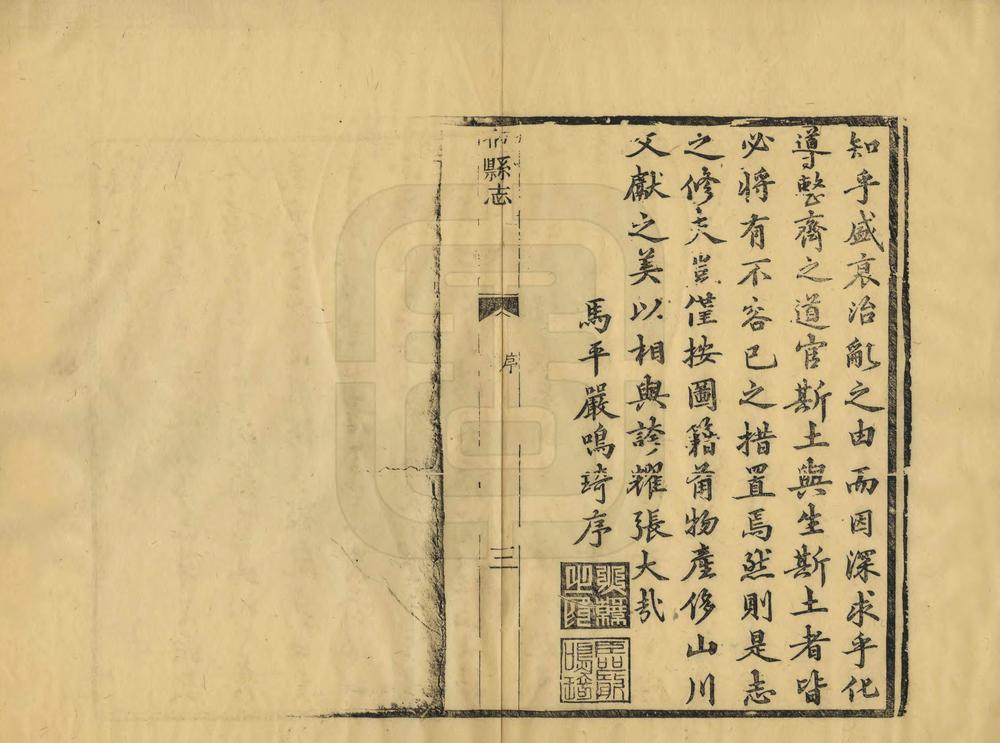 知乎盛衰治亂之由而因深求乎化
導整齊之道官斯土與生斯土者皆
必將有不容已之措置焉然則是志
之修夫豈僅按圖籍萹物產侈山川
文獻之美以相與誇耀張大哉
馬平嚴鳴琦序
臣嚴鳴琦
縣志
序
三